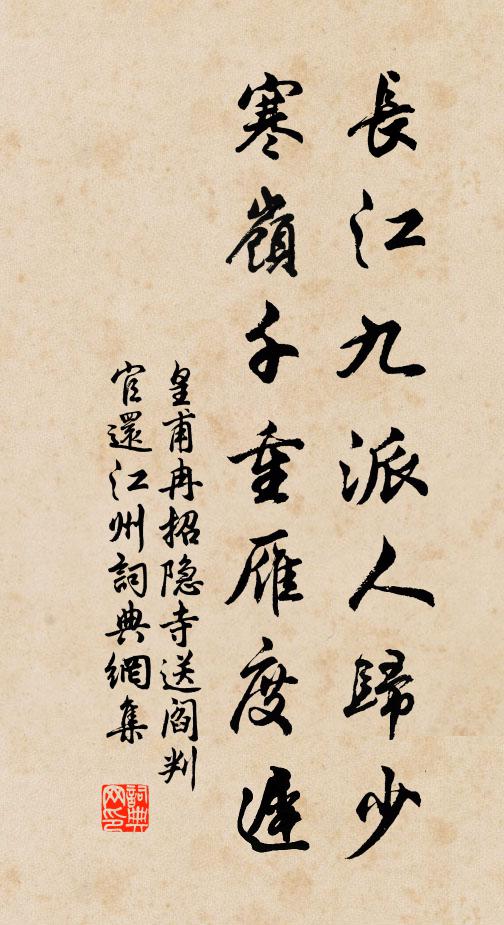 長江九派人歸少
寒嶺千重雁度遲
皇甫冉招隐寺送閻判
官還江州詞典網集
詞典
网印